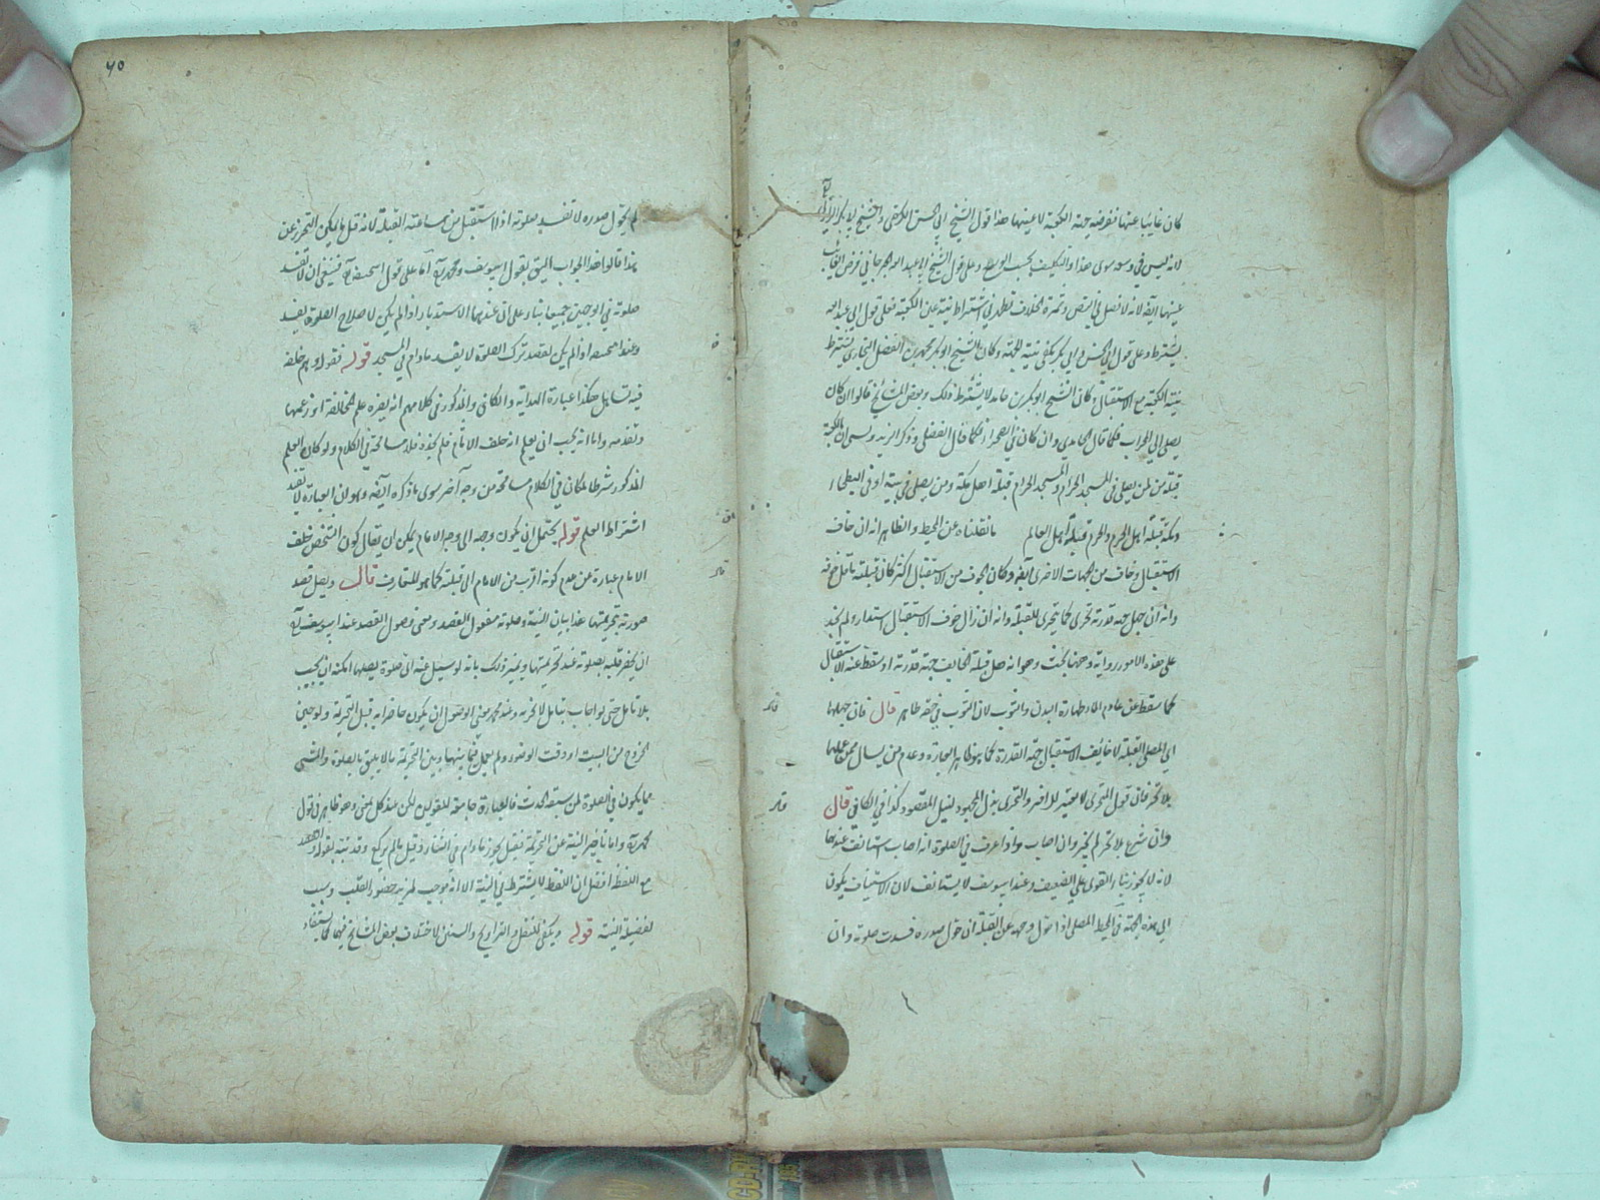 كان غايبا عنها ففرضه جهة الكعبة لا عينها هذا قول الشيخ ابي الحسن الكرخي والشيخ ابي بكر الرازي
لانه ليس في وسعه سوى هذا والتكليف بحسب الوسع وعلى قول الشيخ ابي عبد الله الجرجاني فرض الغائب
عينها ايضا لانه لا فصل في النص وثمرة الخلاف تظهر في اشتراط نية عين الكعبة فعلى قول ابي عبد الله
يشترط وعلى قول ابي الحسن وابي بكر يكفي نية الجهة وكان الشيخ ابو بكر محمد بن الفضل البخاري يشترط
نية الكعبة مع الاستقبال وكان الشيخ ابو بكر بن حامد لا يشترط ذلك وبعض المشائخ قالوا ان كان
يصلي الى المحراب فكما قال الحامدي وان كان في الصحراء فكما قال الفضلي وذكر الزندويسي ان الكعبة
قبلة من يصلي في المسجد الحرام والمسجد الحرام قبلة اهل مكة ومن يصلي في بيته او في البطحاء
ومكة قبلة اهل الحرم والحرم قبلة اهل العالم ما نقلناه عن المحيط والظاهر انه ان خاف
الاستقبال وخاف من الجهات الاخرى ايضا وكان الخوف من الاستقبال اكثر كان قبلته ما قل خوفه
وانه ان جهل جهة قدرته تحرى كما يتحرى للقبلة وانه ان زال خوف الاستقبال استدار ولم نجد
على هذه الامور رواية وههنا بحث وهو انه هل قبلة الخايف جهة قدرته او سقط عنه الاستقبال
كما سقط عن عادم الماء طهارة البدن والثوب لان الثوب في حقه طاهر قال فان جهلها
اي المصلي القبلة لا خائف الاستقبال جهة القدرة كما هو ظاهر العبارة وعدم من يسأل ممن علمها
بلا تحر فان قول المتحري لا يعتبر للآخر والتحري بذل المجهود لنيل المقصود كذا في الكافي قال
وان شرع بلا تحر لم يجز وان اصاب واذا عرف في الصلوة انه اصاب استانف عندهما
لانه لا يجوز بناء القوي على الضعيف وعند ابي يوسف لا يستانف لان الاستيناف يكون
الى هذه الجهة في المحيط المصلي اذا حول وجهه عن القبلة ان حول صدره فسدت صلوته وان
٧٥
لم يحول صدره لا تفسد صلوته اذا استقبل من ساعته القبلة لانه قل ما يمكن التحرز عن
هذا قالوا هذا الجواب اليق بقول ابي يوسف ومحمد اما على قول ابي حنيفة فينبغي ان لا تفسد
صلوته في الوجهين جميعا بناء على ان عندهما الاستدبار اذا لم يكن لاصلاح الصلوة تفسد
وعند ابي حنيفة اذا لم يكن لقصد ترك الصلوة لا يفسد مادام في المسجد قوله فقوله وهم خلفه
فيه تساهل هكذا عبارة الهداية والكافي والمذكور في كلامهم انه يضره علم المخالفة او زعمها
وتقدمه واما انه يجب ان يعلم انه خلف الامام فلم نجده فلا مسامحة في الكلام ولو كان العلم
المذكور شرطا لكان في الكلام مسامحة من وجه آخر سوى ما ذكره ايضا وهو ان العبارة لا تفيد
اشتراط العلم قوله يحتمل ان يكون وجهه الى وجه الامام يمكن ان يقال كون الشخص خلف
الامام عبارة عن عدم كونه اقرب من الامام الى قبلة كما هو المتعارف قال ويصل قصد
صورته بتحريمتها هذا بيان النية وصلوته مفعول القصد ومعنى وصول القصد عند ابي يوسف
ان يحضر قلبه بصلوته عند تحريمتها ويميز ذلك بانه لو سئل عنه اي صلوة يصلها امكنه ان يجيب
بلا تأمل حتى لو اجاب بتأمل لا يجزيه وعند محمد معنى الوصول ان يكون حاضرا به قبل التحريمة ولو حين
الخروج من البيت او وقت الوضوء ولم يعمل فيما بينها وبين التحريمة ما لا يليق بالصلوة والمشي
مما يكون في الصلوة لمن سبقه الحدث فالعبارة جامعة للقولين لكن مذكر كل معنى وهو ظاهر في قول
محمد واما تاخير النية عن التحريمة فقيل يجوز مادام في الثناء وقيل ما لم يركع وقد نبه بقوله والقصد
مع اللفظ افضل ان اللفظ لا يشترط في النية الا انه موجب لمزيد حضور القلب وسبب
لفضيلة النية قوله ويكفي للنفل والتراويح والسنن لاختلاف بعض المشائخ فيها كما يستفاد